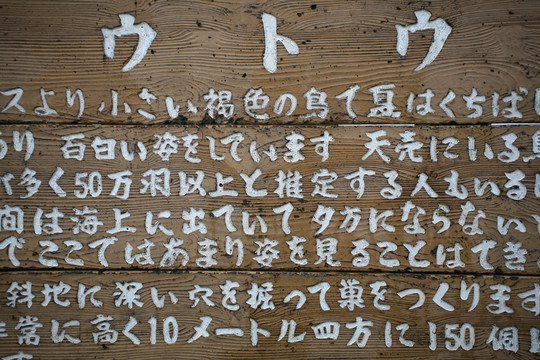 ウトウ
スより小さい褐色の鳥て夏はくちばし
あり 百白い姿をしています 天売にいる鳥
が多く50万羽以上と推定する人もいる
間は海上に出ていて夕方にならない
でここではあまり姿を見ることはでき
斜地に深い穴を掘って巣をつくります
非常に高く10メートル四方に150個